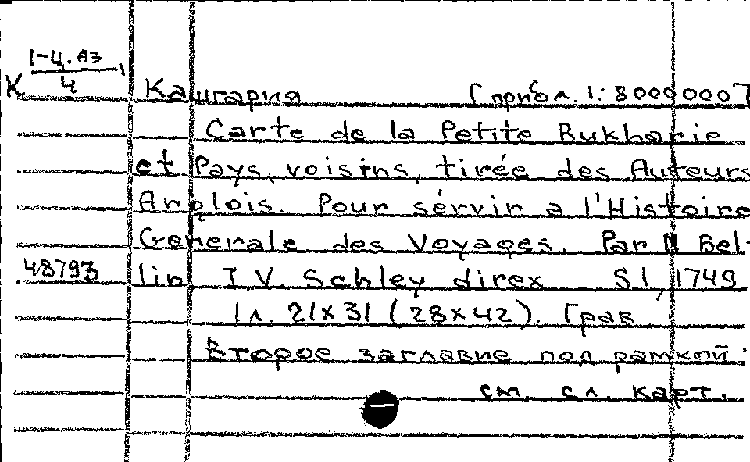 К 1-Ц.Аз/4
Кашгария [прибл. 1:8000000]
Carte de la Petite Bukharie
et Pays voisins, tirée des Auteurs
Anglois. Pour sérvir a l'Histoire
Generale des Voyages. Par N Bel-
48793 lin J.V. Schley direx S.l, 1749
1л. 21x31 (28x42). Грав
Второе заглавие под рамкой.
см. сл. карт.